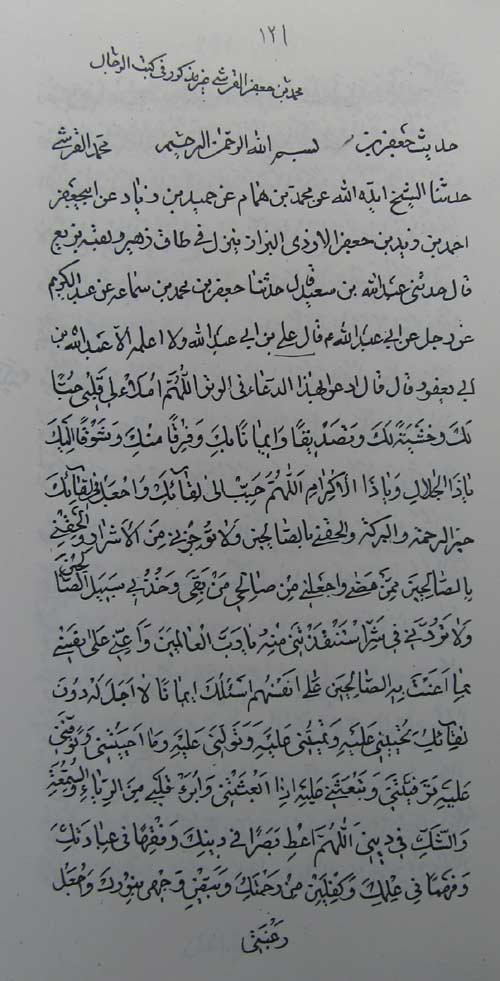 ١٢١
محمد بن جعفر القرشي غير مذكور في كتب الرجال
حديث جعفر بن بسم الله الرحمن الرحيم محمد القرشي
حدثنا الشيخ ايده الله عن محمد بن همام عن حميد بن زياد عن ابيجعفر
احمد بن زيد بن جعفر الازدى البزاز ينزل في طاق زهير ولقبه بزيع
قال حدثنى عبد الله بن سعيد قال حدثنا جعفر بن محمد بن سماعه عن عبد الكريم
عن رجل عن ابي عبد الله ع قال علي بن ابي عبد الله ولا اعلمه الا عبد الله بن
ابي يعفور قال قال ادعو بهذا الدعاء في الوتر اللهم املأ لي قلبى حبّا
لك وخشية لك وتصديقًا وايمانًا بك وفرقًا منك وشوقًا اليك
ياذا الجلال وياذا الاكرام اللهم حبّب الى لقائك واجعل في لقائك
خير الرحمة والبركة والحقنى بالصالحين ولا تؤخرني من الاشرار والحقني
بالصالحين ممن مضى واجعلني من صالحي من بقى وخذ بي سبيل الصالحين
ولا تردنى في شرّ استنقذتنى منه يا رب العالمين واعنّي على نفسي
بما اعنت به الصالحين على انفسهم اسئلك ايمانا لا اجل له دون
لقائك تحييني عليه وتميتني عليه وتولني عليه وما احييتني وتوفّني
عليه اذا توفيتنى وتبعثني عليه اذا ابعثتني وابرء قلبي من الرياء والسمعة
والشك في دينى اللهم اعط بصرًا في دينك وفقهًا في عبادتك
وفهمًا في علمك وكفلين من رحمتك وبيّض وجهى بنورك واجعل
رغبتي